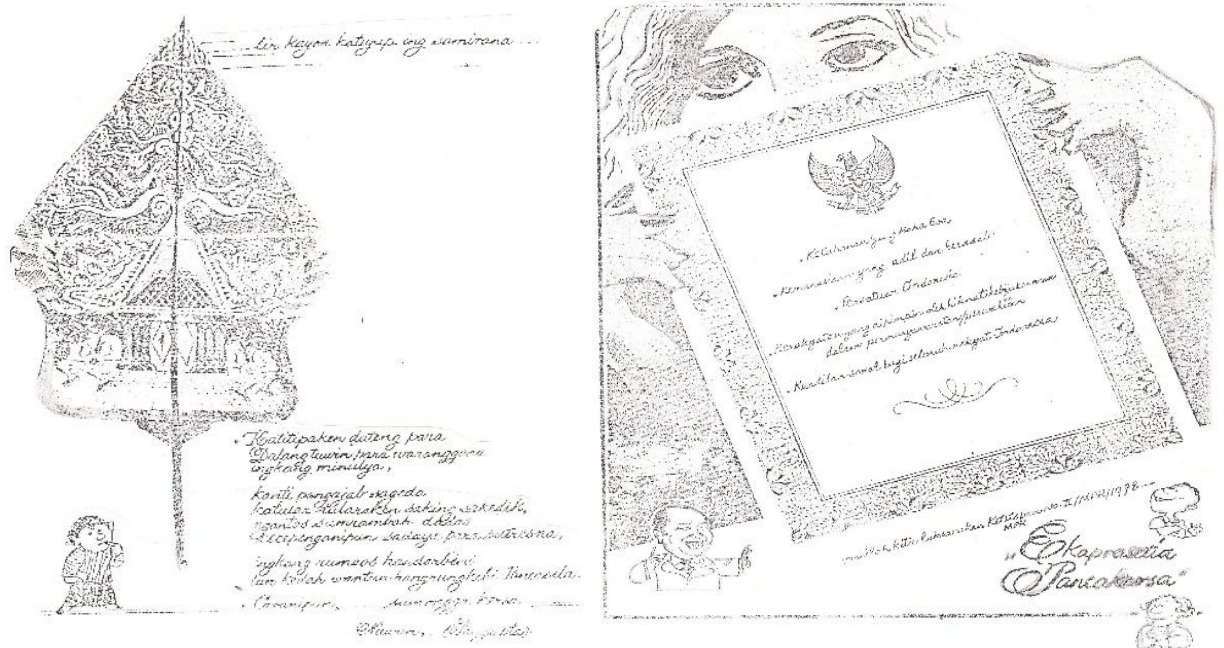 lir kayon katiyup ing samirana ...
Katitipaken dateng para
Dalang tuwin para waranggana
ingkang minulya,
kanti pangajab sageda
katular-tularaken saking sakedik,
ngantos sumrambah dados
sadaya para sutresna,
ingkang rumaos handarbeni
lan kedah wantun hangrungkebi Pancasila.
Ketuhanan yang Maha Esa
Kemanusiaan yang adil dan beradab
Persatuan Indonesia
Kerakyatan yang dipimpin oleh hikmat kebijaksanaan
dalam permusyawaratan/perwakilan
Keadilan sosial bagi seluruh rakyat Indonesia
marilah kita laksanakan Ketetapan no. II/MPR/1978
„Ekaprasetia
Pancakarsa"